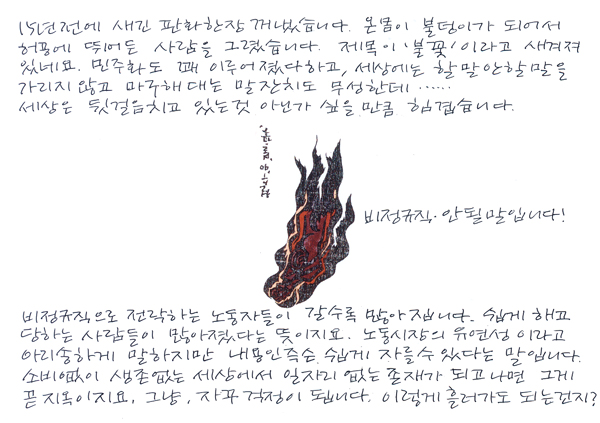 15년전에 새긴 판화한장 꺼냈습니다. 온몸이 불덩이가 되어서
허공에 뛰어든 사람을 그렸습니다. 제목이 '불꽃'이라고 새겨져
있네요. 민주화도 꽤 이루어졌다하고, 세상에는 할말안할말을
가리지 않고 마구해대는 말잔치도 무성한데……
세상은 뒷걸음치고 있는것 아닌가 싶을 만큼 힘겹습니다.
비정규직·안될말입니다!
비정규직으로 전락하는 노동자들이 갈수록 많아집니다. 쉽게 해고
당하는 사람들이 많아졌다는 뜻이지요. 노동시장의 유연성이라고
아리송하게 말하지만 내용인즉슨 쉽게 자를수 있다는 말입니다.
소비없이 생존없는 세상에서 일자리 없는 존재가 되고나면 그게
곧 지옥이지요. 그냥, 자꾸 걱정이 됩니다. 이렇게 흘러가도 되는건지?